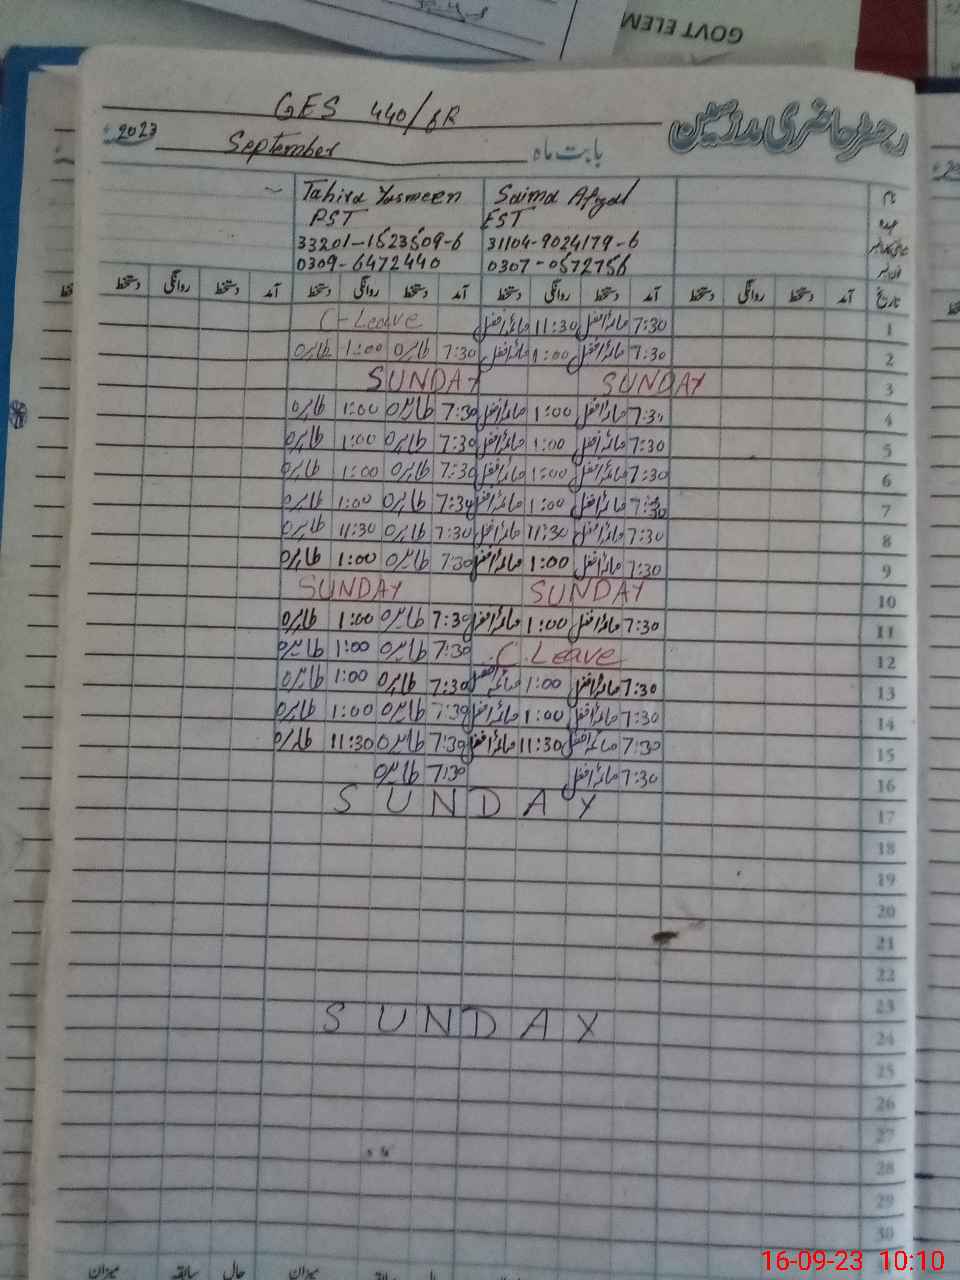 GOVT ELEM
رجسٹر حاضری مدرسین
GES 440/6R
2023ء September بابت ماہ
Tahira Yasmeen Saima Afzal نام
PST EST عہدہ
33201-1523509-6 31104-9024179-6
0309-6472440 0307-0572756
دستخط روانگی دستخط آمد دستخط روانگی دستخط آمد دستخط روانگی دستخط آمد دستخط روانگی دستخط آمد تاریخ
C-Leave صائمہ افضل 11:30 صائمہ افضل 7:30 1
طاہرہ 1:00 طاہرہ 7:30 صائمہ افضل 1:00 صائمہ افضل 7:30 2
SUNDAY SUNDAY 3
طاہرہ 1:00 طاہرہ 7:30 صائمہ افضل 1:00 صائمہ افضل 7:30 4
طاہرہ 1:00 طاہرہ 7:30 صائمہ افضل 1:00 صائمہ افضل 7:30 5
طاہرہ 1:00 طاہرہ 7:30 صائمہ افضل 1:00 صائمہ افضل 7:30 6
طاہرہ 1:00 طاہرہ 7:30 صائمہ افضل 1:00 صائمہ افضل 7:30 7
طاہرہ 11:30 طاہرہ 7:30 صائمہ افضل 11:30 صائمہ افضل 7:30 8
طاہرہ 1:00 طاہرہ 7:30 صائمہ افضل 1:00 صائمہ افضل 7:30 9
SUNDAY SUNDAY 10
طاہرہ 1:00 طاہرہ 7:30 صائمہ افضل 1:00 صائمہ افضل 7:30 11
طاہرہ 1:00 طاہرہ 7:30 C.Leave 12
طاہرہ 1:00 طاہرہ 7:30 صائمہ افضل 1:00 صائمہ افضل 7:30 13
طاہرہ 1:00 طاہرہ 7:30 صائمہ افضل 1:00 صائمہ افضل 7:30 14
طاہرہ 11:30 طاہرہ 7:30 صائمہ افضل 11:30 صائمہ افضل 7:30 15
طاہرہ 7:30 صائمہ افضل 7:30 16
SUNDAY 17
18
19
20
21
22
23
SUNDAY 24
25
26
27
28
29
30
میزان سابقہ حال میزان سابقہ
16-09-23 10:10